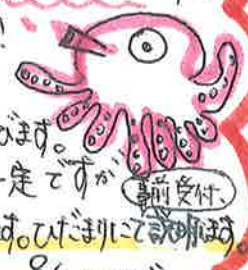 びます。
定ですが
事前受付、
す。ひだまりにて説明します。